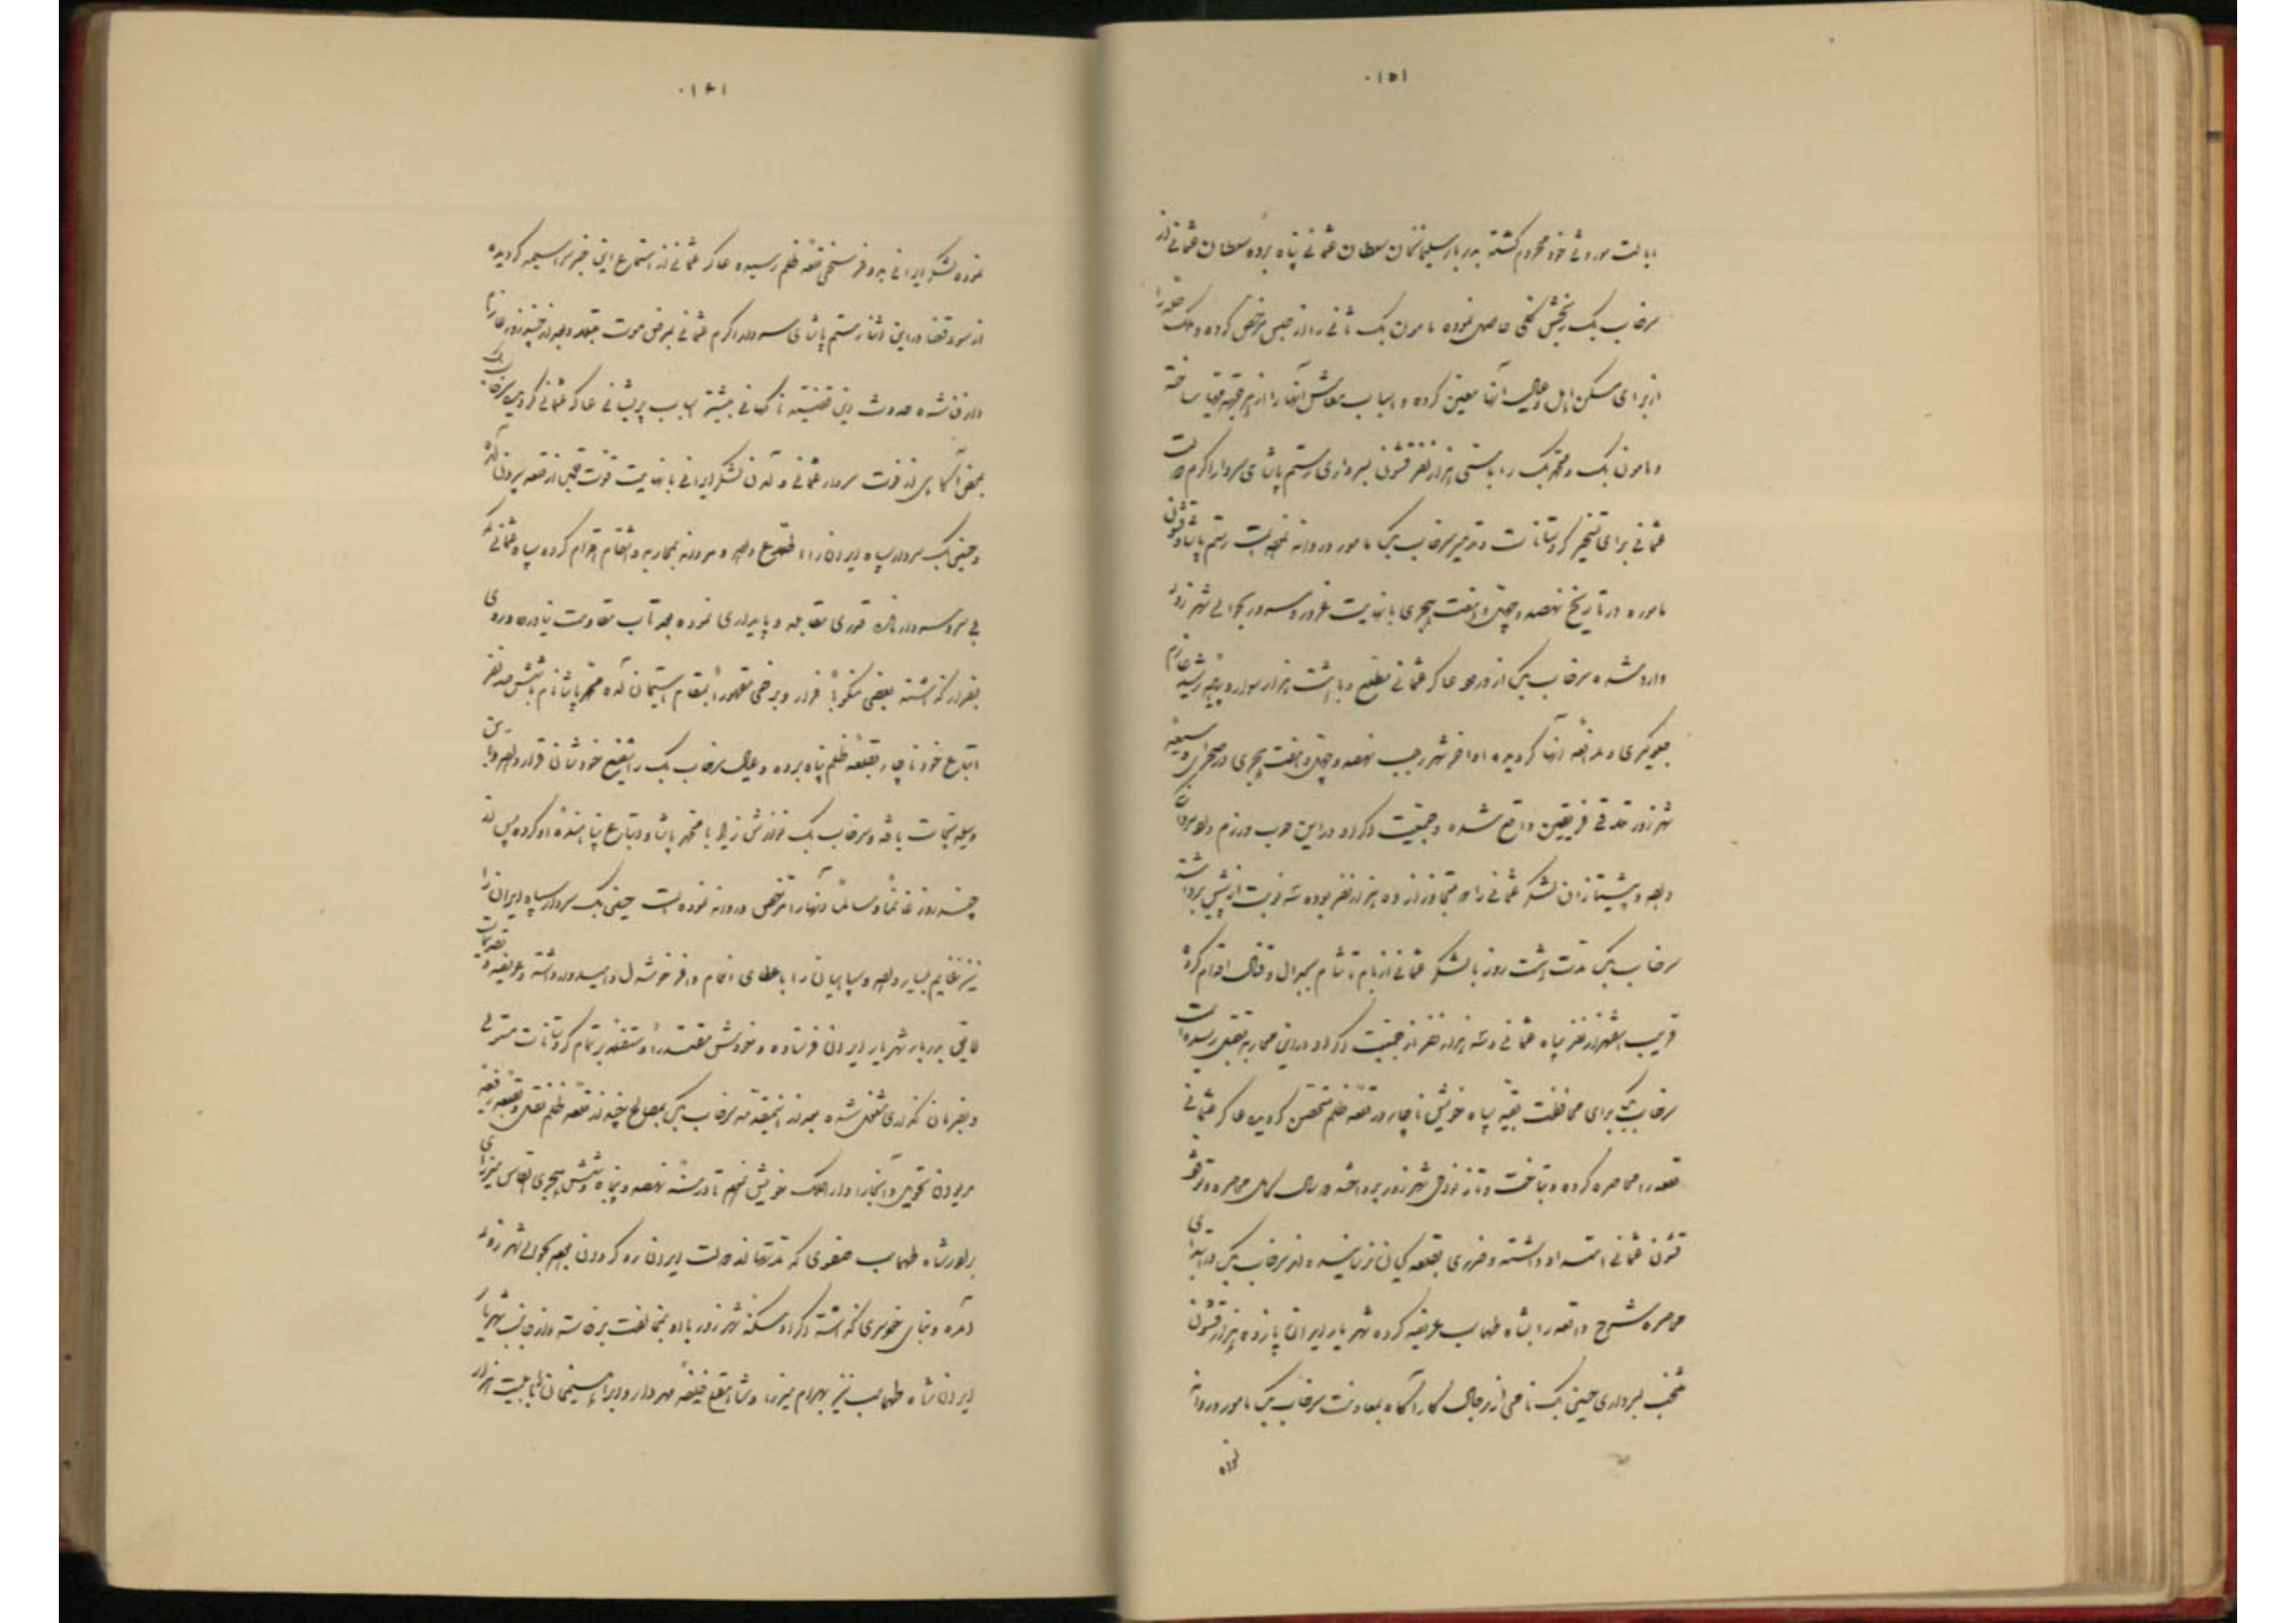 ۱۵۱
ایالت موروثی خود محروم گشته بدربار سلیمانخان سلطان عثمانی پناه برده سلطان عثمانی از
سرخاب بیک رنجش کلی حاصل نموده مامون بیک ثانی را از حبس مرخص کرده و ملک حله را
از برای مسکن اهل و عیال آنها معین کرده و اسباب معاش آنها را از هر جهة مهیا ساخته
و مامون بیک و محمد بیک را با سی هزار نفر قشون بسرداری رستم پاشای سردار اکرم دولت
عثمانی برای تسخیر کردستانات و تدمیر سرخاب بیک مامور و روانه نموده است رستم پاشا و قشون
ماموره در تاریخ نهصد و چهل و هفت هجری با نهایت غرور و سرور بحوالی شهرزور
وارد شده سرخاب بیک از ورود عساکر عثمانی مطلع و با هشت هزار سوار و پیاده رشید عازم
جلوگیری و مدافعه آنها گردیده اواخر شهر رجب نهصد و چهل و هفت هجری در صحرای وسیعه
شهرزور تلاقی فریقین واقع شده و جمعیت اکراد در این حرب و رزم داد مردی
داده و پیشتازان لشکر عثمانی را که متجاوز از ده هزار نفر بوده سه نوبت از پیش برداشته
سرخاب بیک مدت هشت روز با لشکر عثمانی از بام تا شام بجدال و قتال اقدام کرده
قریب هفهزار نفر سپاه عثمانی و سه هزار نفر از جمعیت اکراد در این محاربه بقتل رسیده است
سرخاب بیک برای محافظت بقیه سپاه خویش ناچار در قلعه ظلم متحصن گردیده عساکر عثمانی
قلعه را محاصره کرده و بتاخت و تاز نواحی شهرزور پرداخته دو سال کامل محاصره و توقف
قشون عثمانی امتداد داشته و ضرری بقلعه کیان نرسانیده اند سرخاب بیک در ابتدای
محاصره شرح واقعه را بشاه طهماسب عریضه کرده شهریار ایران پانزده هزار قشون
منتخب بسرداری حسین بیک نامی از رجال کارآگاه بمعاونت سرخاب بیک مامور و روانه
نموده
۱۶۱
نموده لشکر ایرانی به دو فرسخی قلعه ظلم رسیده عساکر عثمانی از استماع این خبر سراسیمه گردیده
از سوء قضا در این اثنا رستم پاشای سردار اکرم عثمانی بمرض موت مبتلا و بعد از چند روز عازم
دار فنا شده حدوث این قضیه ناگهانی بیشتر اسباب پریشانی عساکر عثمانی گردیده سرخاب بیک
بمحض آگاهی از فوت سردار عثمانی و آمدن لشکر ایرانی با نهایت قوت قلب از قلعه بیرون آمده
و حسین بیک سردار سپاه ایران را اطلاع داده و مردانه بمحاربه و انتقام اقدام کرده سپاه عثمانی که
بی سر و سردار مانده قدری مقابله و پایداری نموده بعد تاب مقاومت نیاورده روی
بفرار گذاشته بعضی منکوباً فرار و برخی مقهوراً بمقام استیمان آمده محمد پاشا نام با شش صد نفر
اتباع خود ناچار بقلعه ظلم پناه برده و عیال سرخاب بیک را شفیع خودشان قرار داده و باین
وسیله نجات یافته و سرخاب بیک نوازش زیاد با محمد پاشا و اتباع پناهنده او کرده پس از
چند روز غانماً و سالماً آنها را مرخص و روانه نموده است حسین بیک سردار سپاه ایران را
نیز غنایم بسیار داده و سپاهیان را با عطای انعام وافر خوشدل و امیدوار داشته و عریضه و تقدیمات
لایق بدربار شهریار ایران فرستاده و خودش مقتدراً و مستقلاً بر تمام کردستانات مستولی
و بفرمان گذاری مشغول شده بعد از این مقدمه سرخاب بیک بمصالح چند از قلعه ظلم نقل و بقلعه رفیعه
مریوان تحویل و آنجا را دار الملک خویش نموده تا در سنه نهصد و پنجاه و شش هجری القاس میرزای
برادر شاه طهماسب صفوی که مدتها از دولت ایران رو گردان بوده بحوالی شهرزور
آمده و بنای خودسری گذاشته اکراد و سکنه شهرزور با او بمخالفت برخاسته و از جانب شهریار
ایران شاه طهماسب نیز بهرام میرزا و شاه قلی خلیفه مهردار و ابراهیم خان با بیست هزار